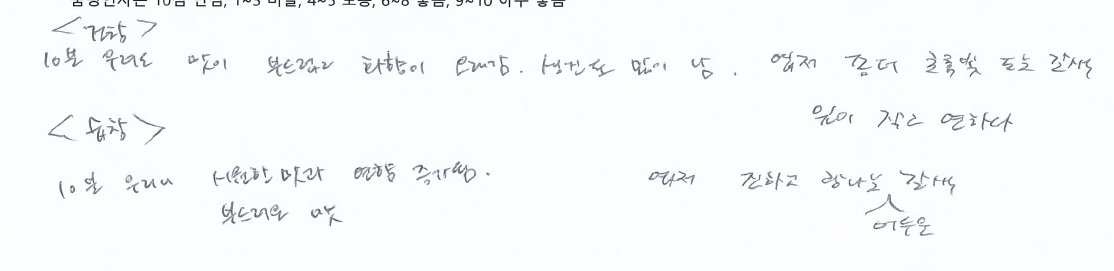 품평인사는 10점 만점, 1~3 미흡, 4~5 보통, 6~8 좋음, 9~10 아주 좋음
<거창>
10분 우려도 맛이 부드럽고 화향이 오래감. 많이 남. 엽저 좀더 초록빛 도는 갈색
잎이 작고 연하다
10분 우리니 시원한 맛과 연향 증가됨. 엽저 진하고 갈색
부드러운 맛 어두운